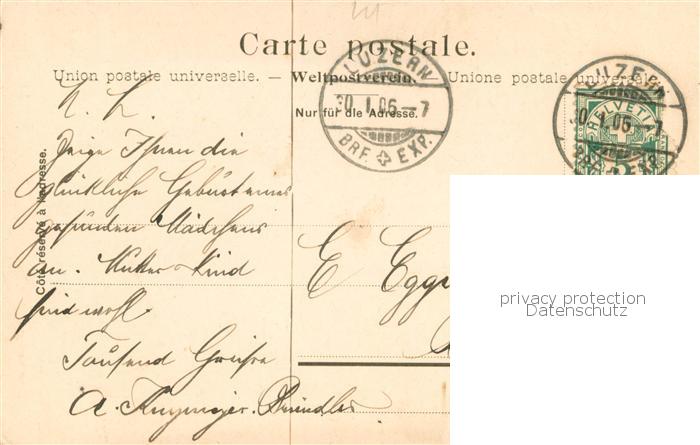 Carte postale.
Union postale universelle. — Weltpostverein. — Unione postale universale.
Nur für die Adresse.
Côté réservé à l'adresse.
LUZERN
30. I. 06 — 7
BRF. EXP.
LUZERN
30. I. 06 — 7
BRF. EXP.
HELVETIA
5
Zeige Ihnen die
glückliche Geburt eines
gesunden Mädchens
an. Mutter & Kind
sind wohl.
Tausend Grüsse
A.
E Egg
privacy protection
Datenschutz